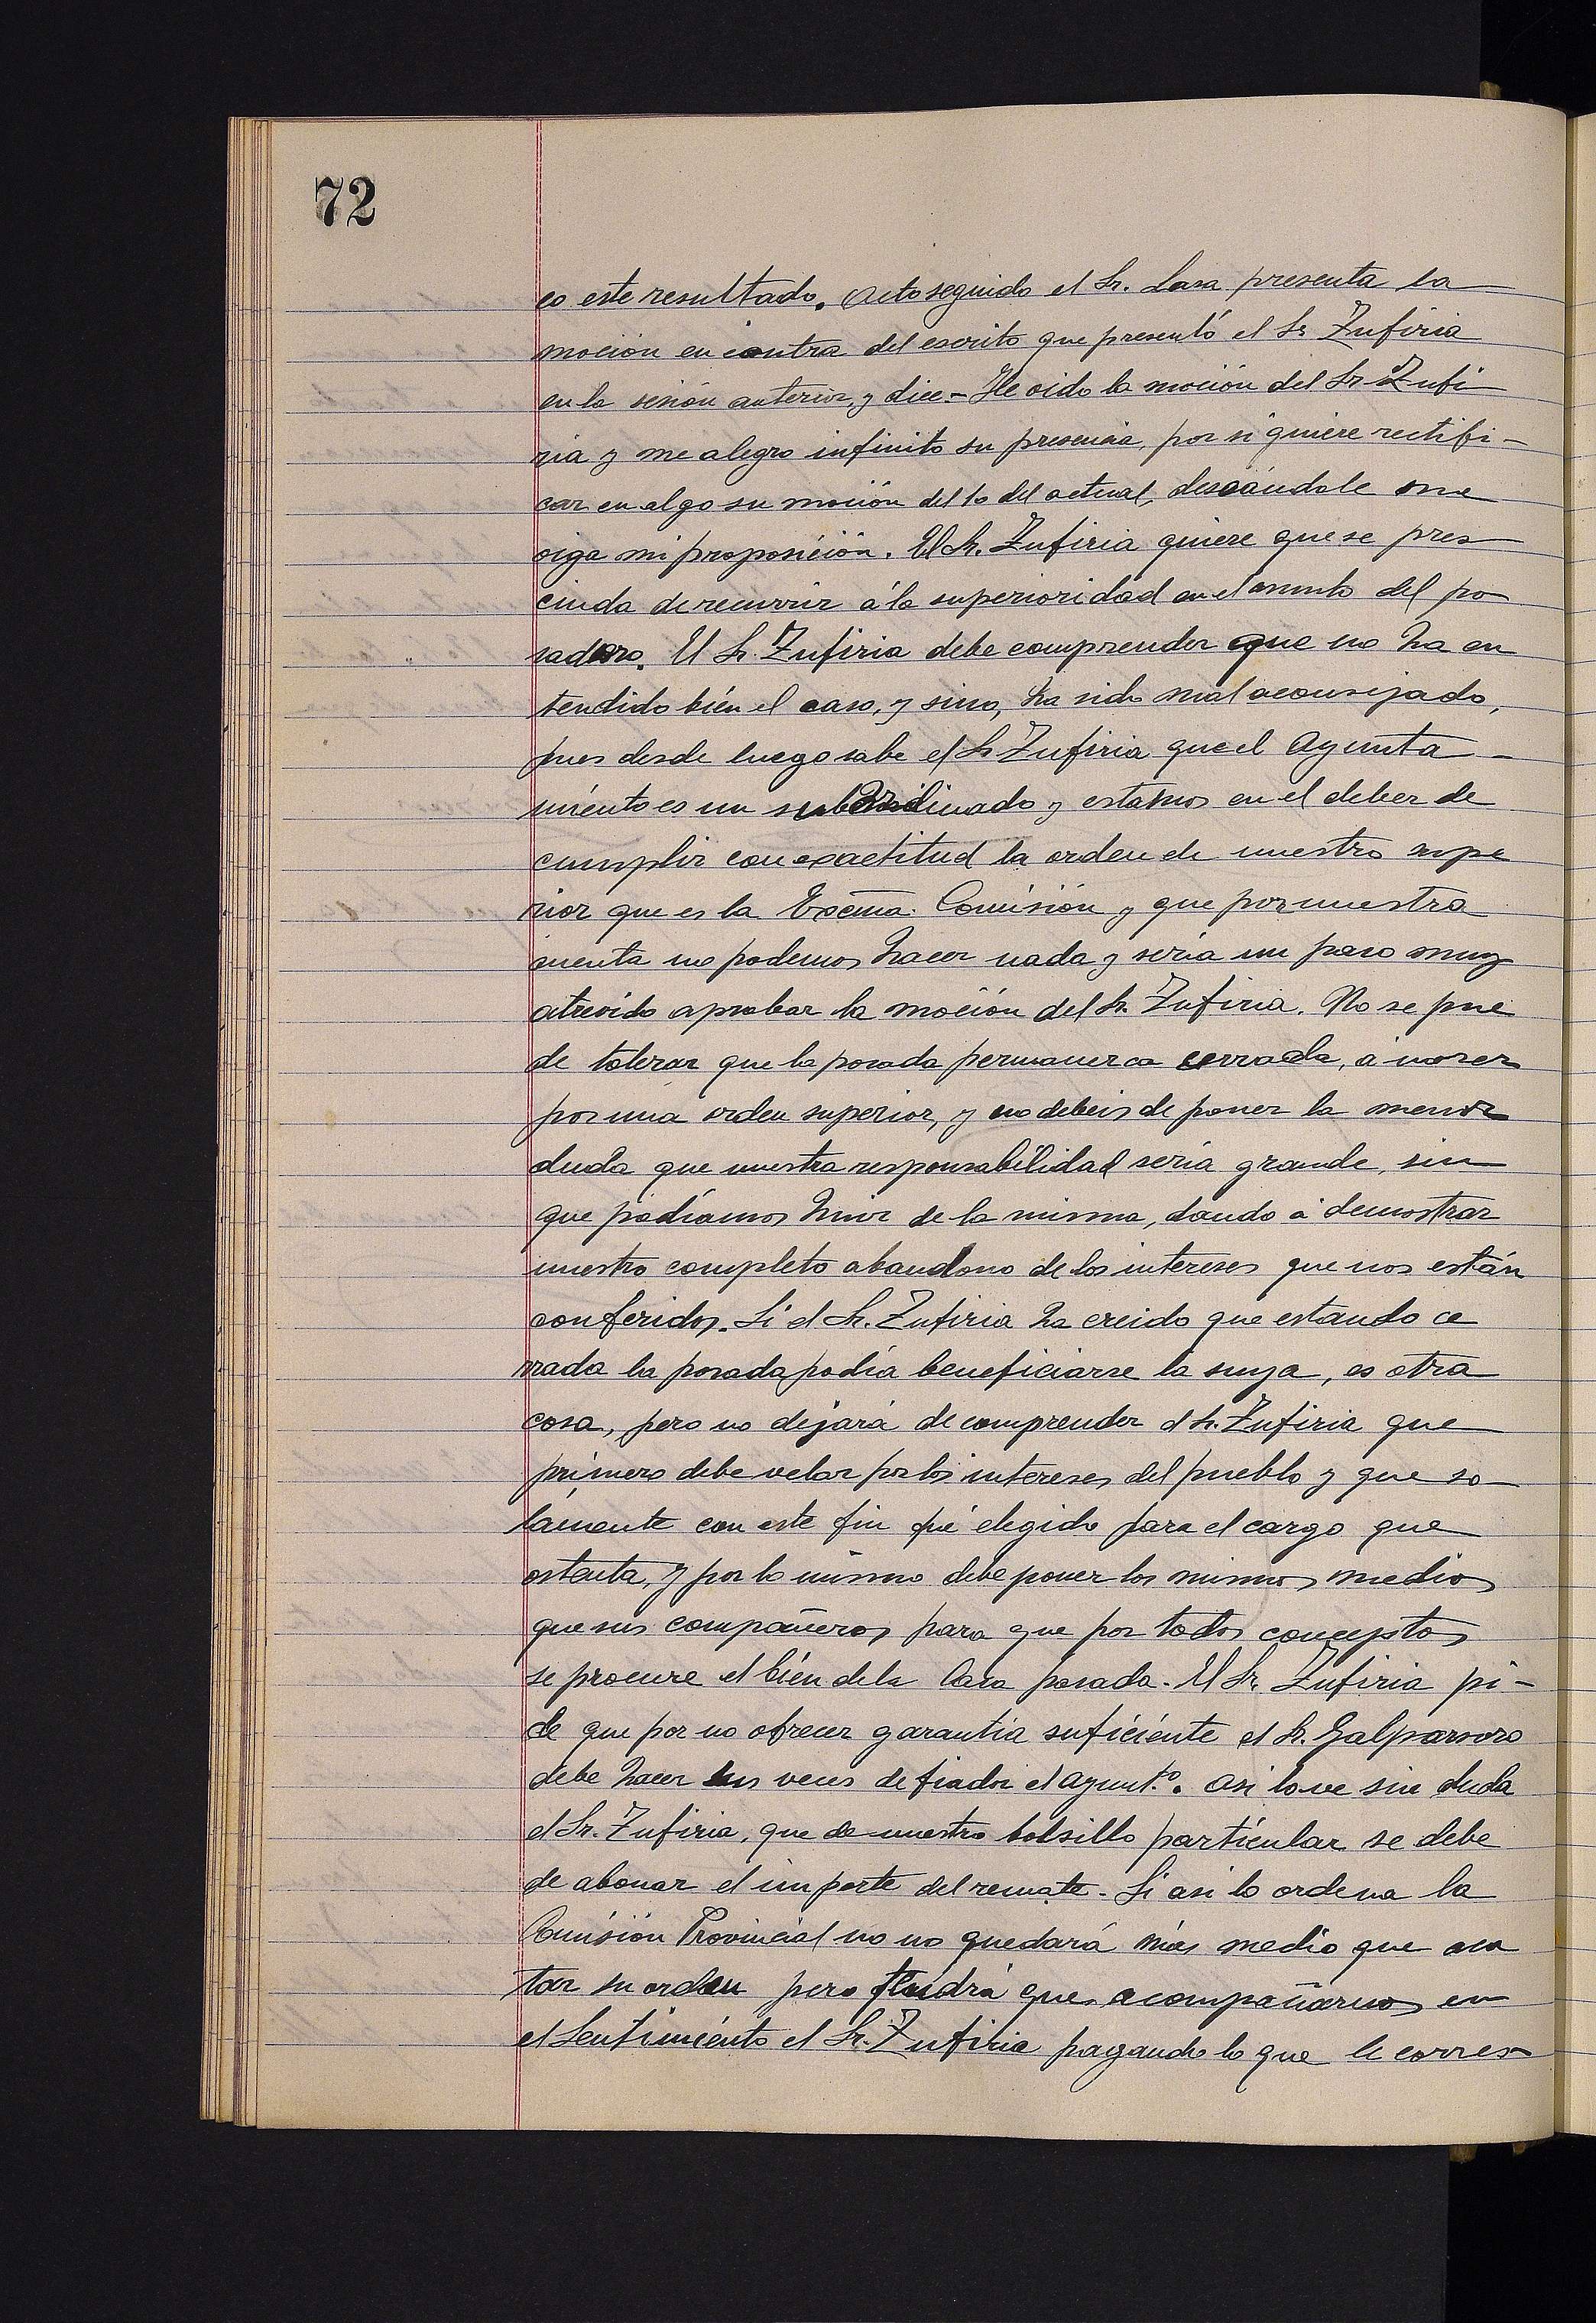 72
es este resultado. Acto seguido el Sr. Lasa presenta la
moción en contra del escrito que presentó el Sr Zufiria
en la sesión anterior, y dice - He oido la moción del Sr Zufi
ria y me alegro infinito su presencia, por si quiere rectifi-
car en algo su moción del 10 del actual, deseándole me
oiga mi proposición. El Sr. Zufiria quiere que se pres
cinda de recurrir á la superioridad en el asunto del po
sadero. El Sr. Zufiria debe comprender que no ha en
tendido bién el caso, y sino, ha sido mal aconsejado,
pues desde luego sabe el Sr Zufiria que el Ayunta-
miento es un subordinado y estamos en el deber de
cumplir con exactitud la orden de nuestro supe
rior que es la Excma. Comisión y que por nuestra
cuenta no podemos hacer nada y seria un paso muy
atrevido aprobar la moción del Sr. Zufiria. No se pue
de tolerar que la posada permanezca cerrada, á no ser
por una orden superior, y no debeis de poner la menor
duda que nuestra responsabilidad seria grande, sin
que podíamos huir de la misma, dando á demostrar
nuestro completo abandono de los intereses que nos están
conferidos. Si el Sr. Zufiria ha creido que estando ce
rrada la posada podía beneficiarse la suya, es otra
cosa, pero no dejará de comprender el Sr. Zufiria que
primero debe velar por los intereses del pueblo y que so
lamente con este fin fué elegido para el cargo que
ostenta, y por lo mismo debe poner los mismos medios
que sus compañeros para que por todos conceptos
se procure el bién de la Casa posada. El Sr. Zufiria pi-
de que por no ofrecer garantía suficiente el Sr. Galparsoro
debe hacer sus veces de fiador el Ayunt.º. Asi lo ve sin duda
el Sr. Zufiria, que de nuestro bolsillo particular se debe
de abonar el importe del remate. Si asi lo ordena la
Comisión Provincial no no quedará más medio que aca
tar su orden pero tendrá que acompañarnos en
el Sentimiento el Sr. Zufiria pagando lo que le corres